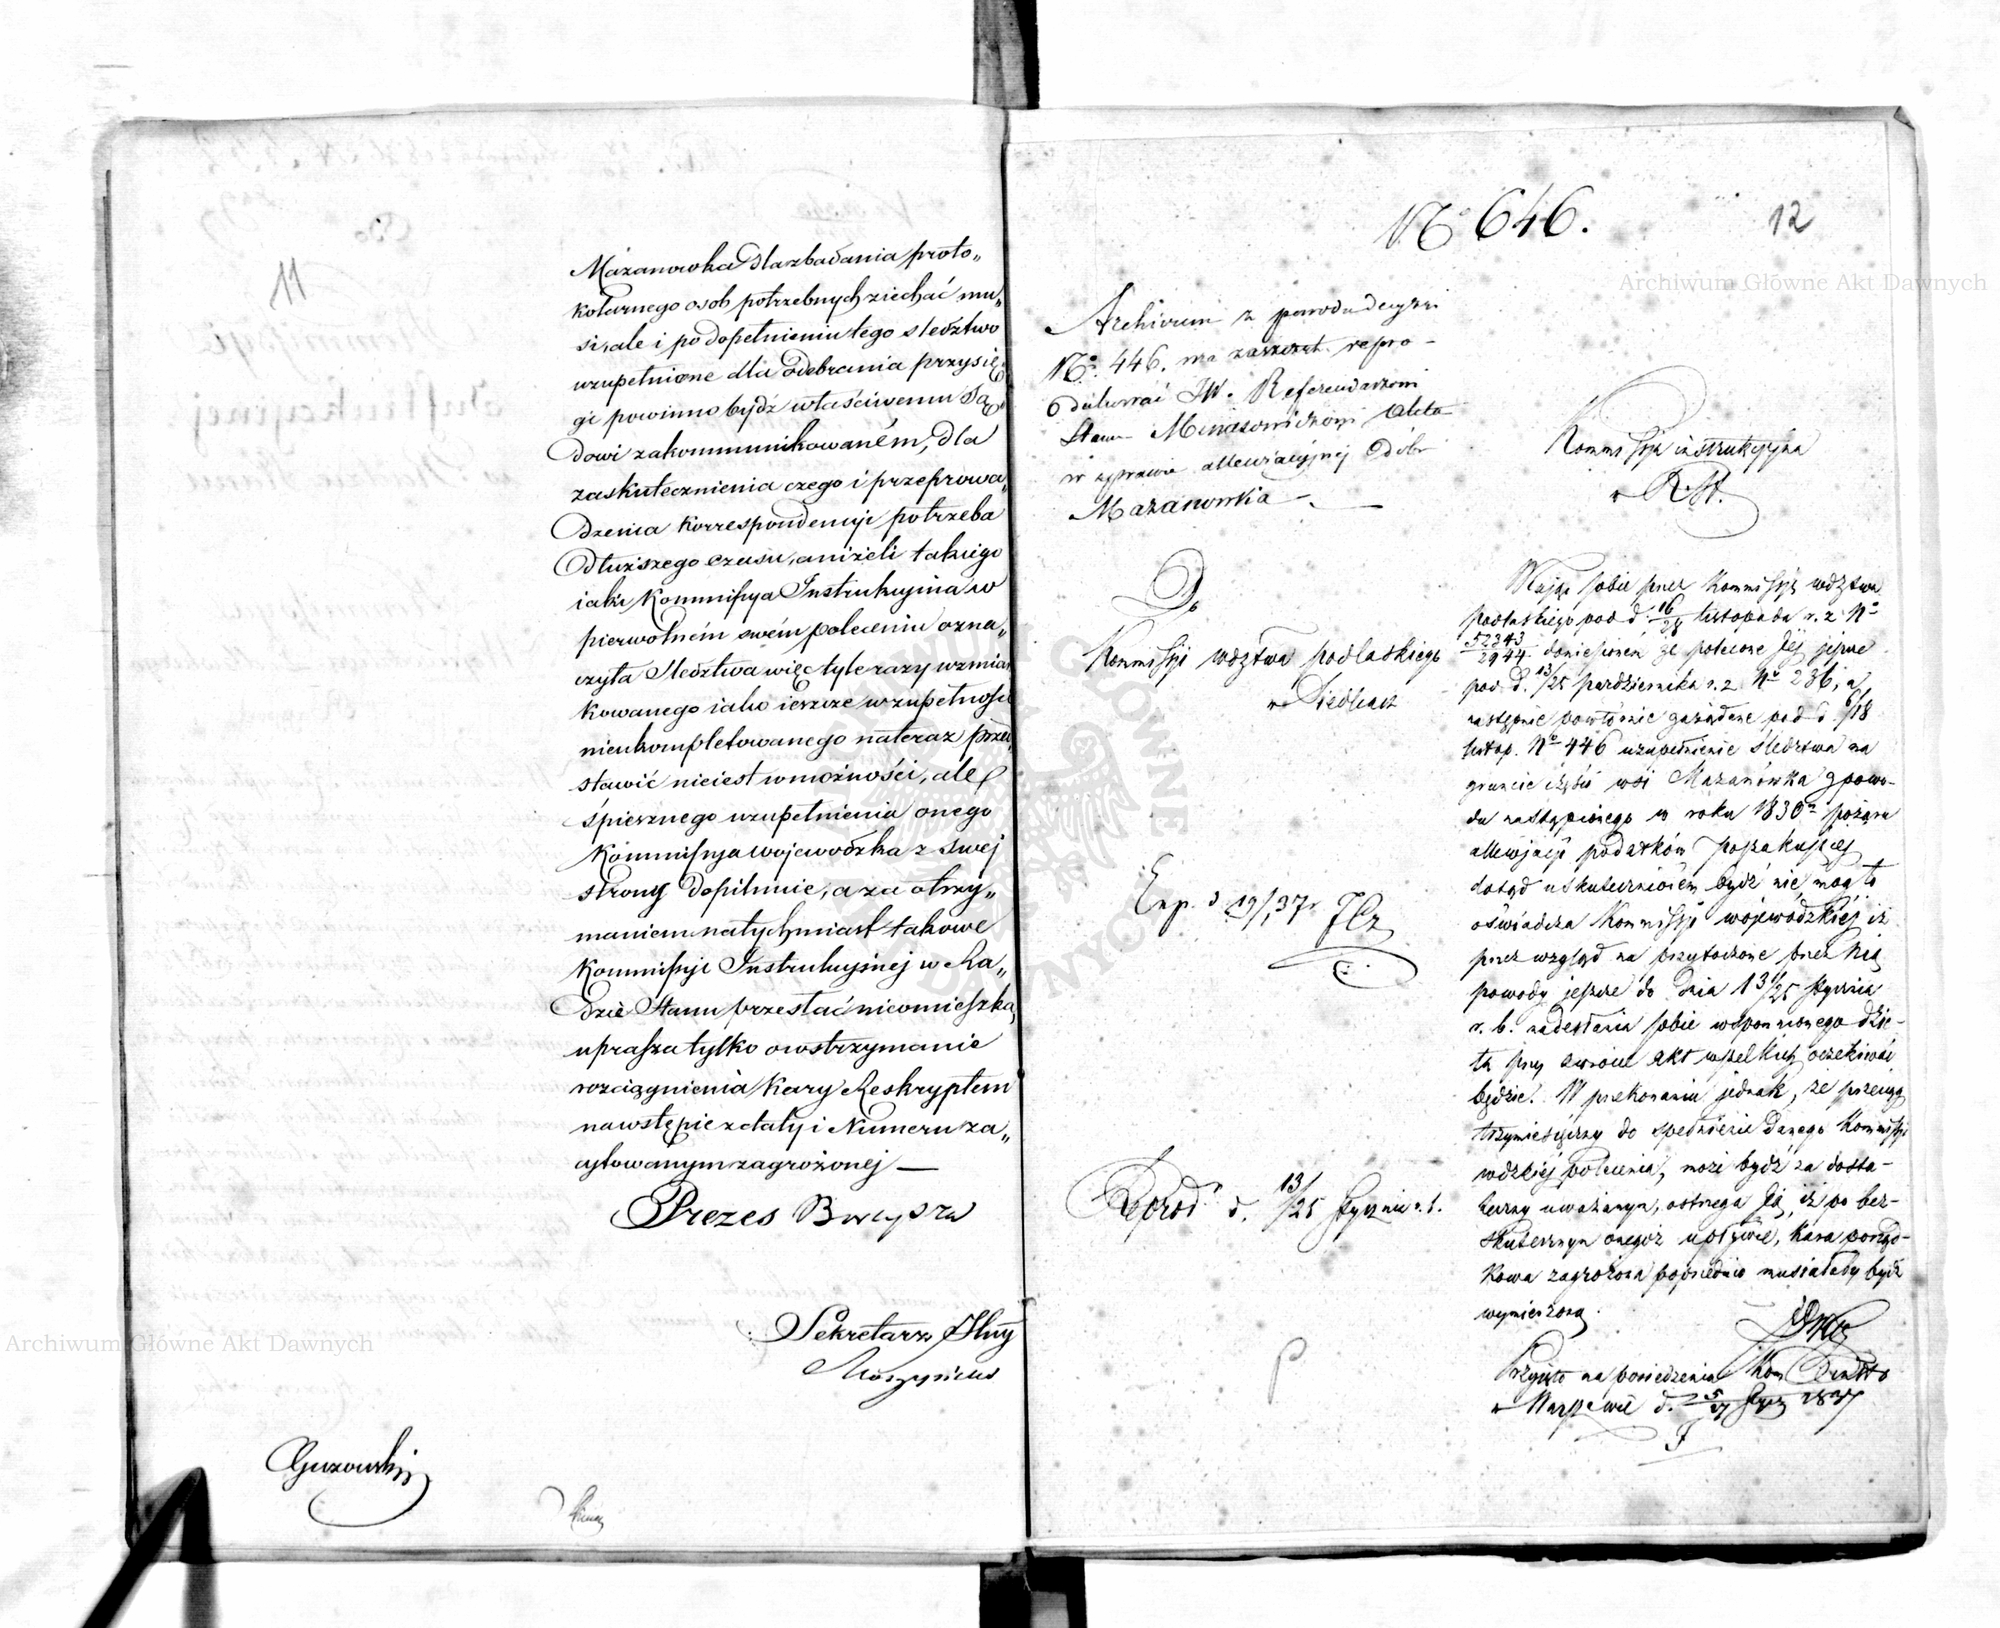 Mazanowka dla zbadania proto„
kolarnego osob potrzebnych ziechać mu„
siał i po dopełnieniu tego sledztwo
uzupełnione dla odebrania przysię„
gi powinno bydź właściwemu Są„
dowi zakommunikowaném, dla
zaskutecznienia czego i przeprowa„
dzenia korrespondencyi potrzeba
dłuższego czasu, aniżeli takiego
iaki Kommissya Instrukcyjna w
pierwotném swém poleceniu ozna„
czyła Sledztwa więc tyle razy wzmian
kowanego iako ieszcze w zupełności
nieukompletowanego na teraz przed
stawić nie iest w możności, ale
śpiesznego uzupełnienia onego
Kommissya Wojewodzka z swej
strony dopilnuie, a za otrzy„
maniem natychmiast takowe
Kommissyi Instrukcyjnej w Ra„
dzie Stanu przesłać nieomieszka,
uprasza tylko o wstrzymanie
rozciągnienia kary Reskryptem
na wstępie z daty i Numeru za„
cytowanym zagrożonej —
Prezes
Sekretarz Jlny
Guzowski
11
No 646.
12
Archiwum z powodu decyzyi
No. 446. ma zaszczyt repro-
dukować JW. Referendarzowi
Stanu Minasowiczowi akta
w sprawie allewiacyjnej dóbr
Mazanowka —
Do
Kommissyi wdztwa podlaskiego
w Siedlcach
Exp. d 19/1 37
Reprod. d. 13/25 Stycznia r. b.
Kommissya instrukcyjna
w R. St.
Mając sobie przez Kommissyę wdztwa
podlaskiego pod d. 16/28 listopada r. z. No
52343/2944 doniesioném że polecone Jej jeszcze
pod d. 13/25 października r. z. No 236, a
następnie powtórnie zażądane pod d. 6/18
listop. No 446 uzupełnienie śledztwa na
gruncie części wsi Mazanówka z powo-
du nastąpionego w roku 1830m pożaru
allewjacji podatków poszukującej
dotąd uskutecznioném bydź nie mogło
oświadcza Kommissyi wojewódzkiej iż
przez wzgląd na przytoczone przez nią
powody jeszcze do dnia 13/25 Stycznia
r. b. nadesłania sobie wspomnionego dzie-
ła przy zwrocie akt wszelkich oczekiwać
będzie. W przekonaniu jednak, że przeciąg
trzymiesięczny do spełnienia danego Kommissyi
wdzkiej polecenia, może bydź za dosta-
teczny uważanym, ostrzega Ją, iż po bez-
skutecznym onegoż upływie, kara porząd-
kowa zagrożona poprzednio musiałaby bydź
wymierzona.
Przyjęto na posiedzeniu Kom
w Warszawie d. 5/17 Stycz 1837
Archiwum Główne Akt Dawnych
Archiwum Główne Akt Dawnych